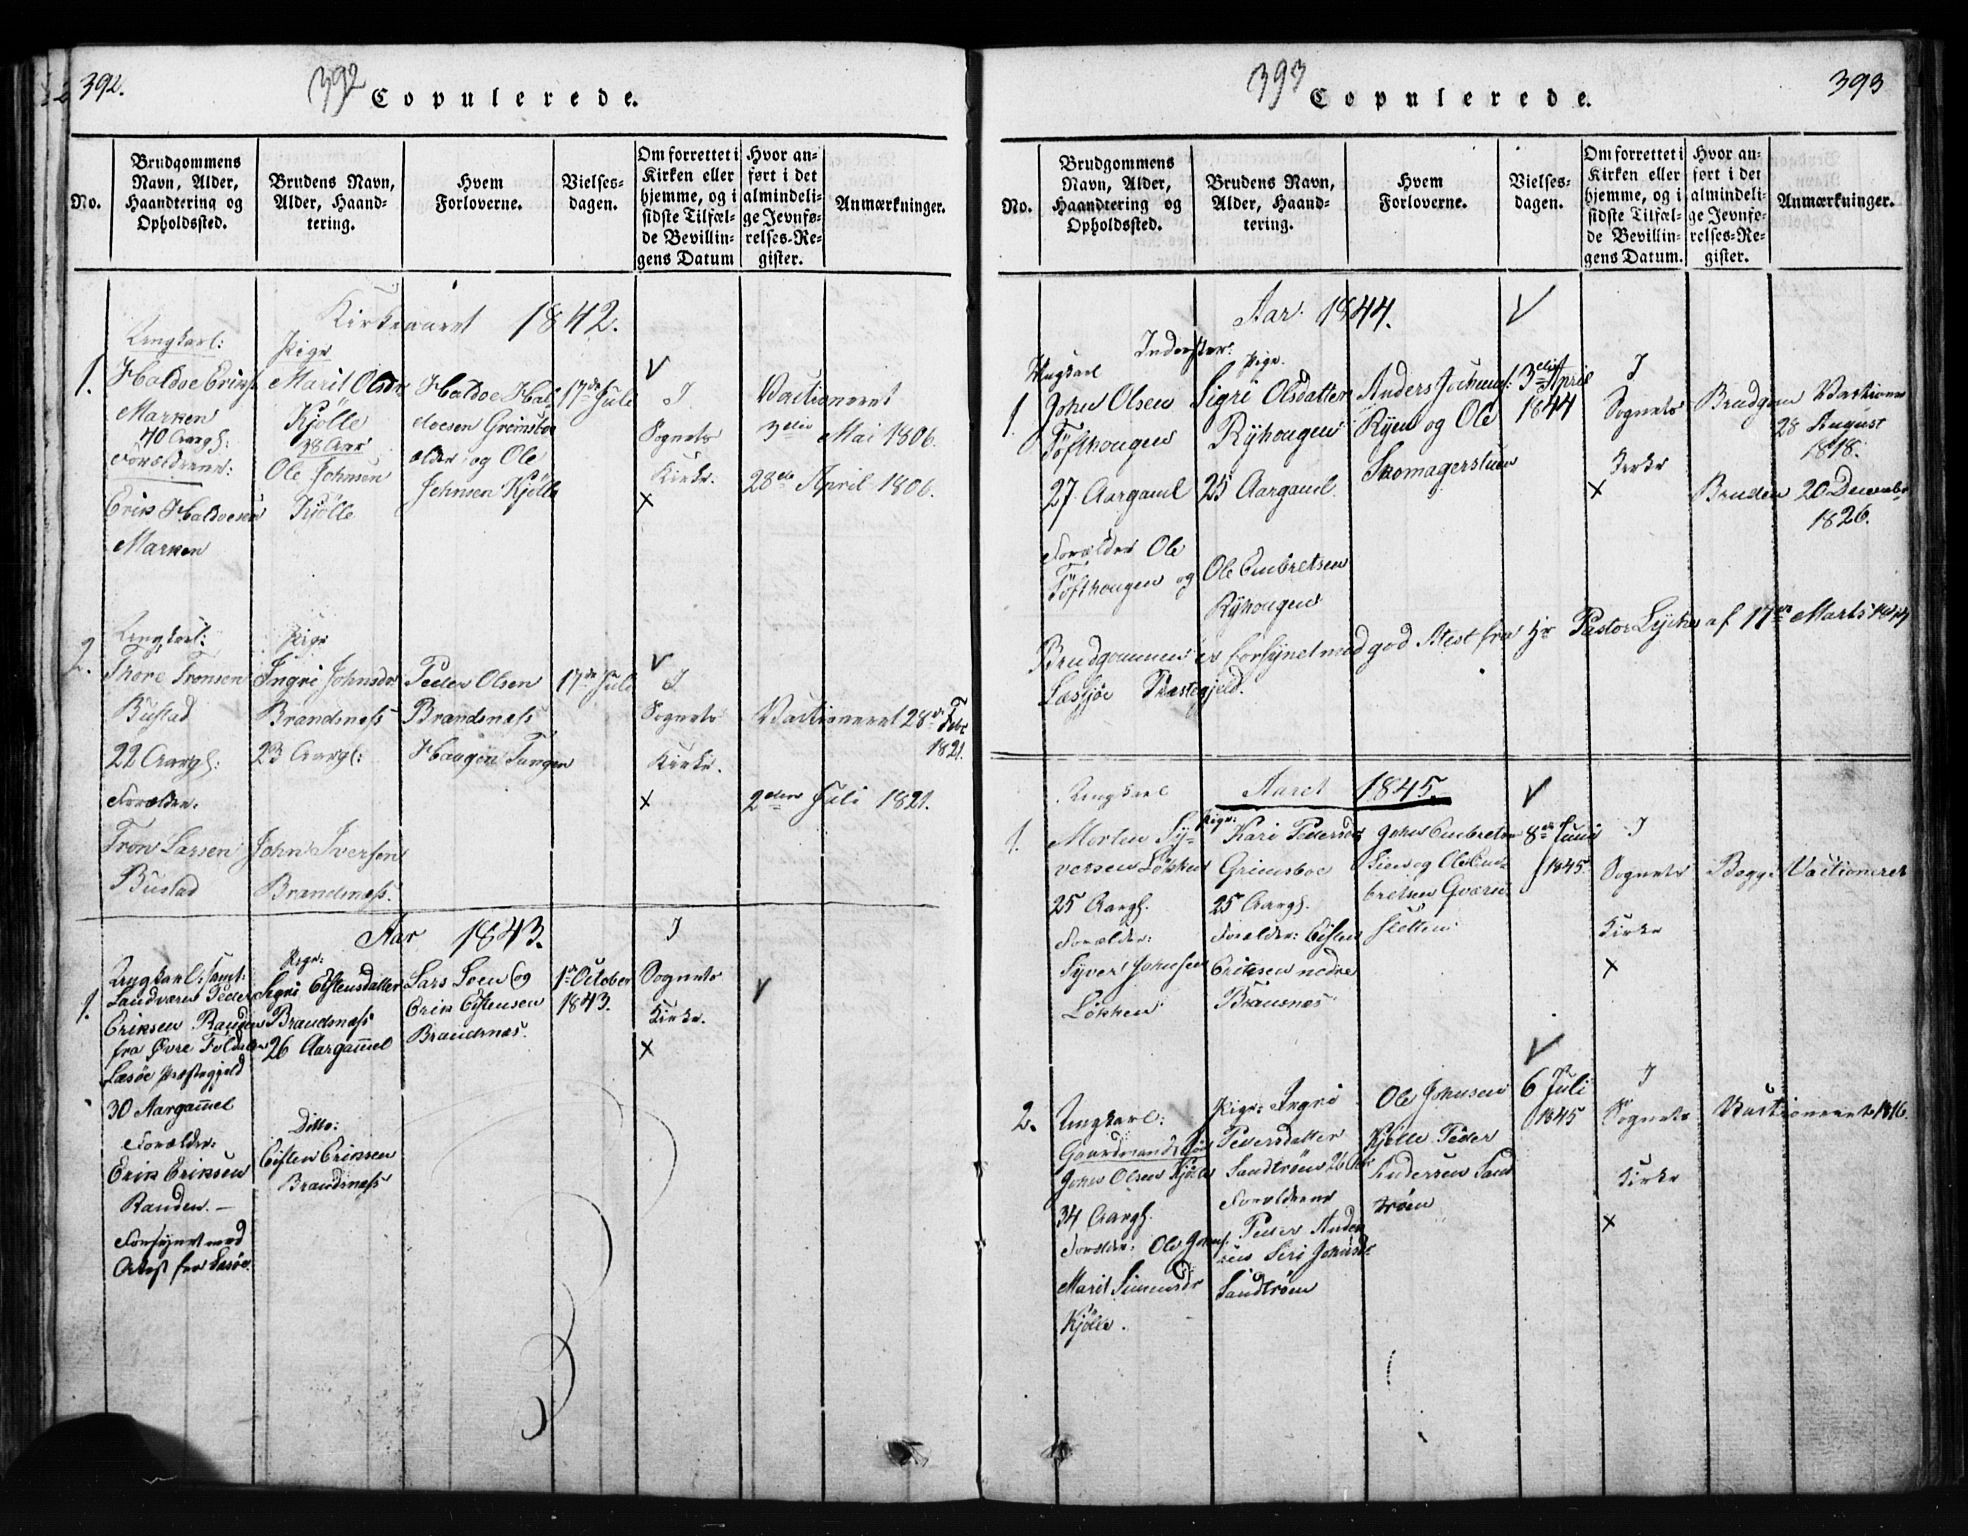 392.
392
Copulerede.
No.
Brudgommens
Navn, Alder,
Haandtering og
Opholdssted.
Brudens Navn,
Alder, Haand-
tering.
Hvem
Forloverne.
Vielses-
dagen.
Om forrettet i
Kirken eller
hjemme, og i
sidste Tilfæl-
de Bevillin-
gens Datum
Hvor an-
ført i det
almindeli-
ge Jevnfø-
relses-Re-
gister.
Anmærkninger.
Kirkeaaret 1842.
1.
Ungkarl:
Haldoe Eriks.
Marken
40 Aargl:
Forældrene:
Erik Haldoesen
Marken
Pige
Marit Olsdr
Kjölle
38 Aar
Ole Johnsen
Kjölle
Haldoe Hal-
doesen Grimsboe
ældre og Ole
Johnsen Kjölle
17de Juli
I
Sognets
Kirke.
X
Vactioneret
3die Mai 1806.
28de April 1806.
2.
Ungkarl:
Thore Tronsen
Bustad
22 Aargl:
Forælder:
Tron Larsen
Bustad
Pige
Ingri Johnsdr
Brandsnæss
23 Aargl:
John Iversen
Brandsnæss.
Peder Olsen
Brandsnæss
Haagen Tangen
17de Juli
I
Sognets
Kirke.
X
Vactioneret 28de Febr
1821.
2den Juli 1821.
Aar 1843.
1.
Ungkarl: samt.
Landværn Peder
Eriksen Randen
fra Øvre Foldalen
Læsöe Præstegjeld
30 Aargam̅el
Forælder:
Erik Eriksen
Randen. —
Forsynet med
Attest fra Læsöe.
Pige:
Sigri Eistensdatter
Brandsnæss
26 Aargam̅el
Ditto:
Eisten Eriksen
Brandsnæss
Lars Loen og
Erik Eistensen
Brandsnæs.
1ste October
1843.
I
Sognets
Kirke.
X
393
393
Copulerede.
No.
Brudgommens
Navn, Alder,
Haandtering og
Opholdssted.
Brudens Navn,
Alder, Haand-
tering.
Hvem
Forloverne.
Vielses-
dagen.
Om forrettet i
Kirken eller
hjemme, og i
sidste Tilfæl-
de Bevillin-
gens Datum.
Hvor an-
ført i det
almindeli-
ge Jevnfø-
relses-Re-
gister.
Anmærkninger.
Aar 1844.
Inderster:
1.
Ungkarl
John Olsen
Töfthougen
27 Aargaml
Forælder Ole
Töfthougen og
Pige.
Sigri Olsdatter
Ryhougen
25 Aargaml.
Ole Embretsen
Ryhougen
Anders Jochums:
Ryen og Ole
Skomagerstuen
3die April
1844
I
Sognets
Kirke
X
Brudgom Vactione
28 August
1818.
Bruden 20 December
1826.
Brudgommen er forsynet med god Atest fra Hr Pastor Lycke af 17de Marts 1844
Læsjöe Præstegjeld.
Aaret 1845.
1.
Ungkarl
Morten Sy-
versen Lökken
25 Aargl.
Forælder:
Syver Johnsen
Lökken
Pige:
Kari Pedersdr
Grimsboe
25 Aargl.
Forælder: Eisten
Eriksen nedre
Bransnæs
John Embretsen
Lien og Ole Em-
bretsen Gværn
sletten
8de Juni
1845.
I
Sognets
Kirke
X
Begge Vactioneret
2.
Ungkarl:
Gaardmands Sön
John Olsen Kjölle
34 Aargl.
Forælder: Ole Johns.
Marit Simensdr
Kjölle.
Pige: Ingri
Pedersdatter
Sandtröen 26 Aar
Forældrene
Peder Ander
sen Siri Johnsdr
Sandtröen
Ole Johnsen
Kjölle Peder
Andersen Sand
tröen
6te Juli
1845
I
Sognets
Kirke
X
Vactioneret 1816.